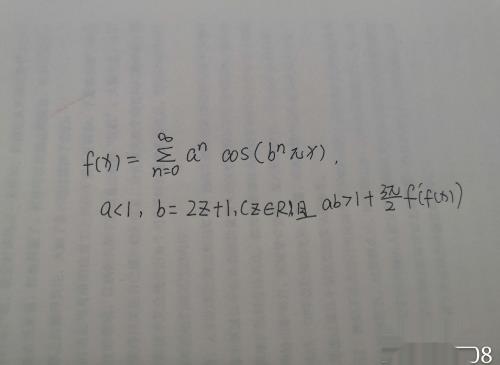 f(x) = ∞ Σ n=0 aⁿ cos(bⁿπx),
a<1, b=2Z+1,(Z∈R)且 ab>1+3π/2 f'(f(x))
08